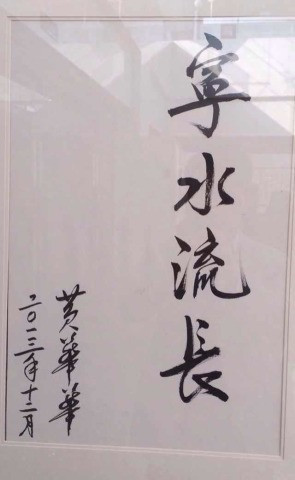 寧水流長
黄華華
二〇一三年十二月